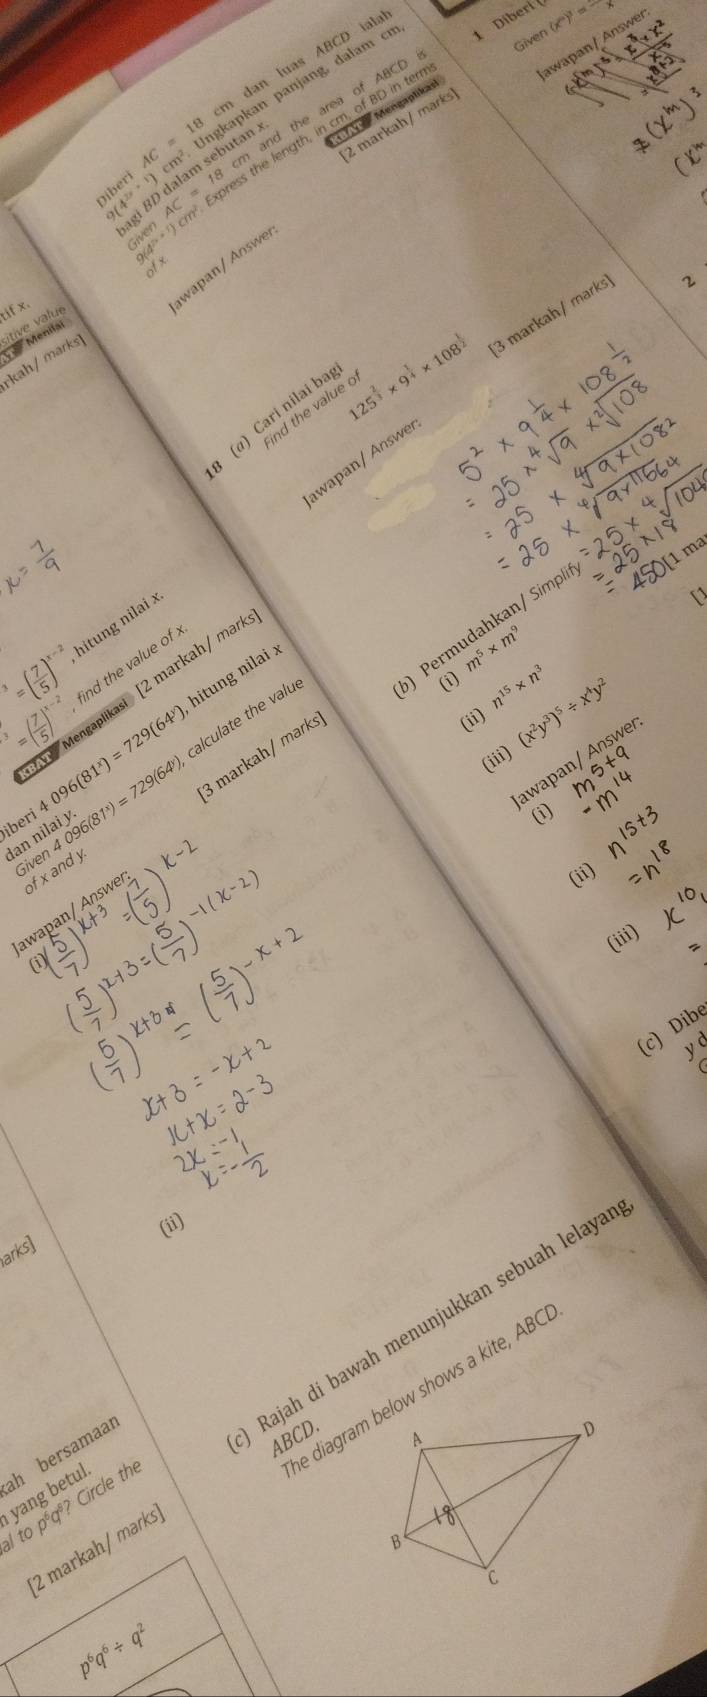 Diberi AC = 18 cm dan luas ABCD ialah
cm². Ungkapkan panjang, dalam cm,
bagi BD dalam sebutan x.
Given AC = 18 cm and the area of ABCD is
cm². Express the length, in cm, of BD in terms
of x.
KBAT Mengaplikasi
[2 markah/ marks]
Jawapan/ Answer:
18 (a) Cari nilai bagi
Find the value of
125^(2/3) × 9^(1/4) × 108^(1/2)
[3 markah/ marks]
Jawapan/ Answer:
5² × 9^(1/4) × 108^(1/2)
= 25 × ⁴√9 × ²√108
= 25 × ⁴√9×108²
= 25 × ⁴√9×11664
= 25 × 18
= 450
(b) Permudahkan/ Simplify
(i) m⁵ × m⁹
(ii) n¹⁵ × n³
(iii) (x²y³)⁵ ÷ x⁴y²
Jawapan/ Answer:
(i) m^(5+9)
= m¹⁴
(ii) n^(15+3)
= n¹⁸
(iii) x¹⁰
=
(c)
tif x.
sitive value
Menilai
arkah/ marks]
x = 7/9
= (7/5)^(x−2), hitung nilai x.
= (7/5)^(x−2), find the value of x.
KBAT Mengaplikasi [2 markah/ marks]
Diberi 4 096(81ˣ) = 729(64ʸ), hitung nilai x
dan nilai y.
Given 4 096(81ˣ) = 729(64ʸ), calculate the value
of x and y.
[3 markah/ marks]
Jawapan/ Answer:
(i) (5/7)^(x+3) = (7/5)^(x−2)
(5/7)^(x+3) = (5/7)^(−1(x−2))
(5/7)^(x+3) = (5/7)^(−x+2)
x+3 = −x+2
x+x = 2−3
2x = −1
x = −1/2
(ii)
arks]
(c) Rajah di bawah menunjukkan sebuah lelayang,
ABCD.
The diagram below shows a kite, ABCD.
A
D
18
B
C
kah bersamaan
n yang betul.
al to p⁶q⁸? Circle the
[2 markah/ marks]
p⁶q⁶ ÷ q²
1 Diberi
Given
Jawapan/ Answer:
(xᵐ)³